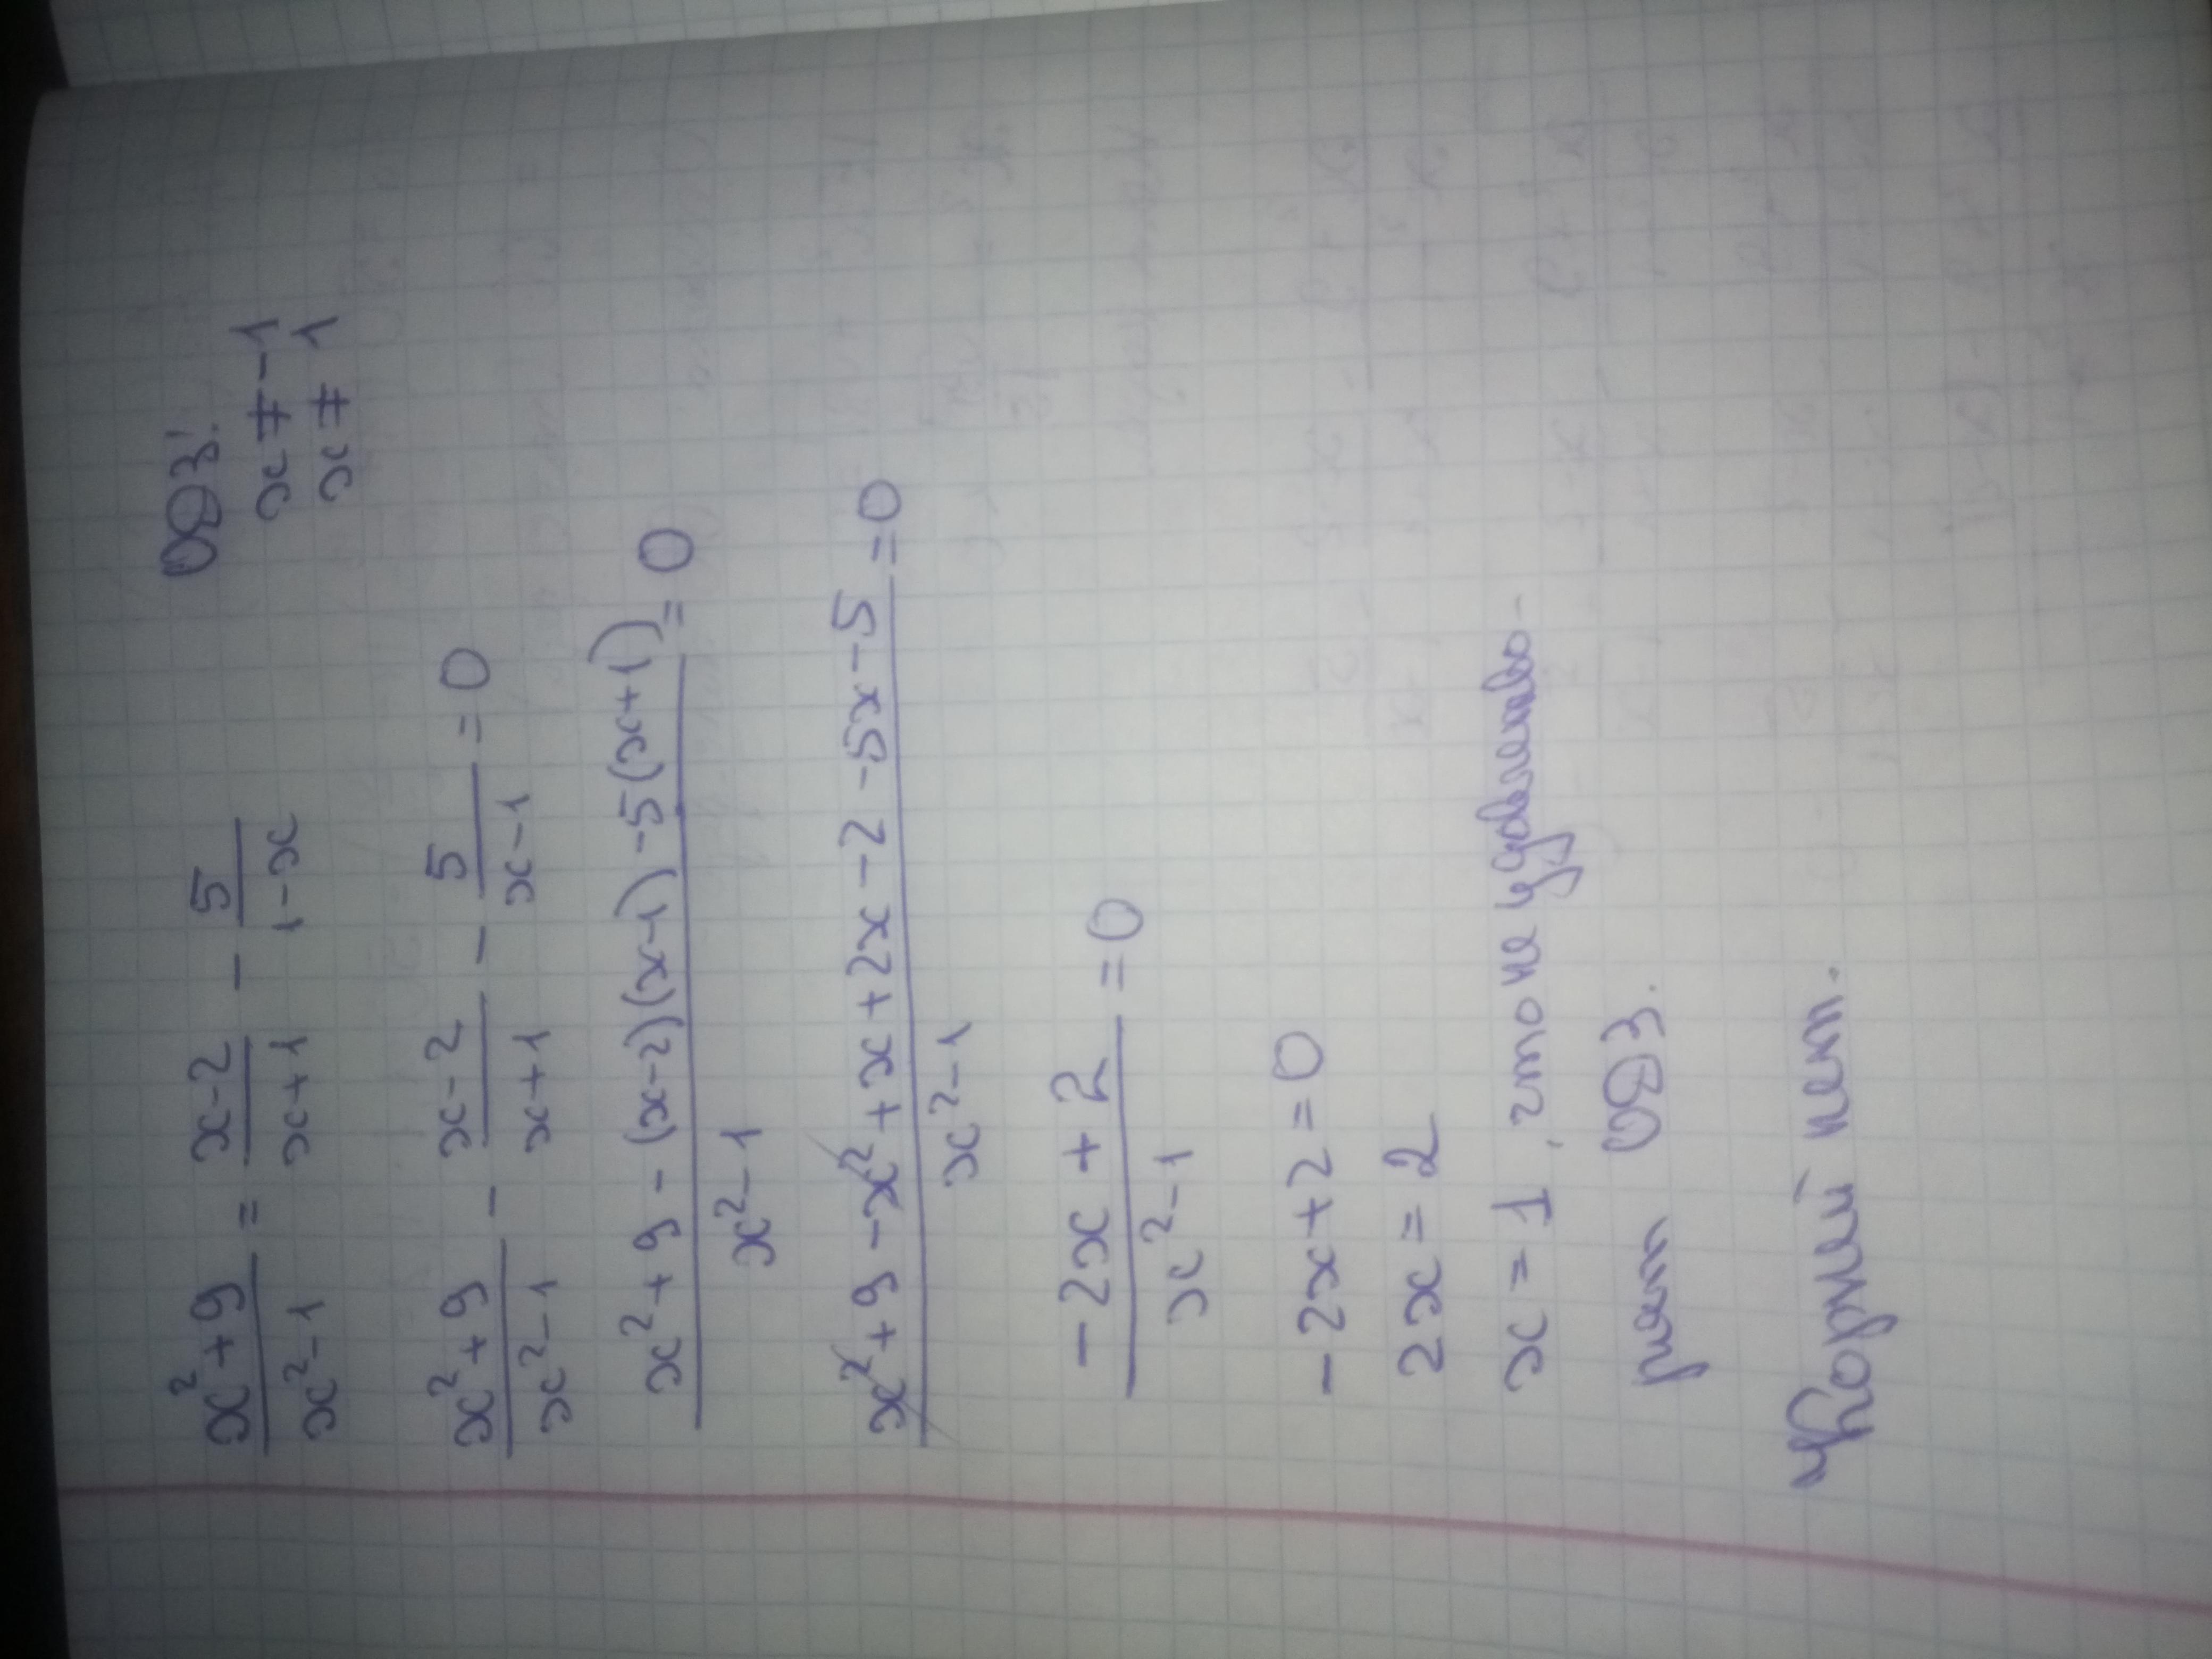 (x²+9)/(x²-1) = (x-2)/(x+1) - 5/(1-x) ОДЗ:
x ≠ -1
x ≠ 1
(x²+9)/(x²-1) - (x-2)/(x+1) - 5/(x-1) = 0
(x²+9-(x-2)(x-1)-5(x+1))/(x²-1) = 0
(x²+9-x²+x+2x-2-5x-5)/(x²-1) = 0
(-2x+2)/(x²-1) = 0
-2x+2=0
2x=2
x=1, что не удовлетво-
ряет ОДЗ.
Корней нет.